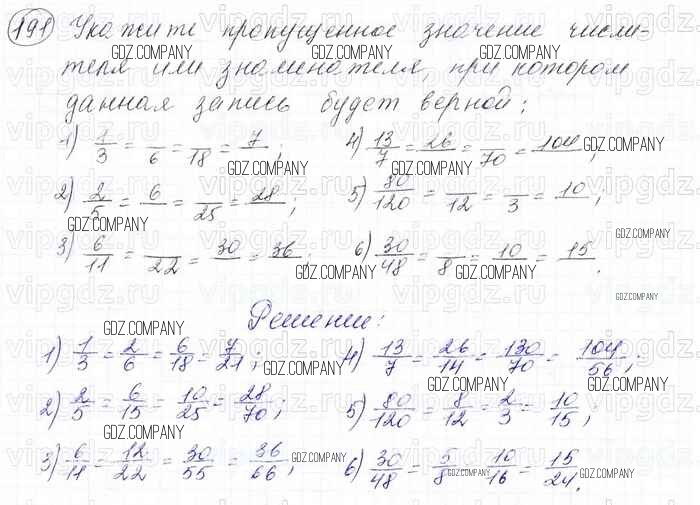 191 Укажите пропущенное значение числи-
теля или знаменателя, при котором
данная запись будет верной:
1) 1/3 = /6 = /18 = 7/ ; 4) 13/7 = 26/ = /70 = 104/ ;
2) 2/5 = 6/ = /25 = 28/ ; 5) 80/120 = /12 = /3 = 10/ ;
3) 6/11 = /22 = 30/ = 36/ ; 6) 30/48 = /8 = 10/ = 15/ .
Решение:
1) 1/3 = 2/6 = 6/18 = 7/21 ; 4) 13/7 = 26/14 = 130/70 = 104/56 ;
2) 2/5 = 6/15 = 10/25 = 28/70 ; 5) 80/120 = 8/12 = 2/3 = 10/15 ;
3) 6/11 = 12/22 = 30/55 = 36/66 ; 6) 30/48 = 5/8 = 10/16 = 15/24 .